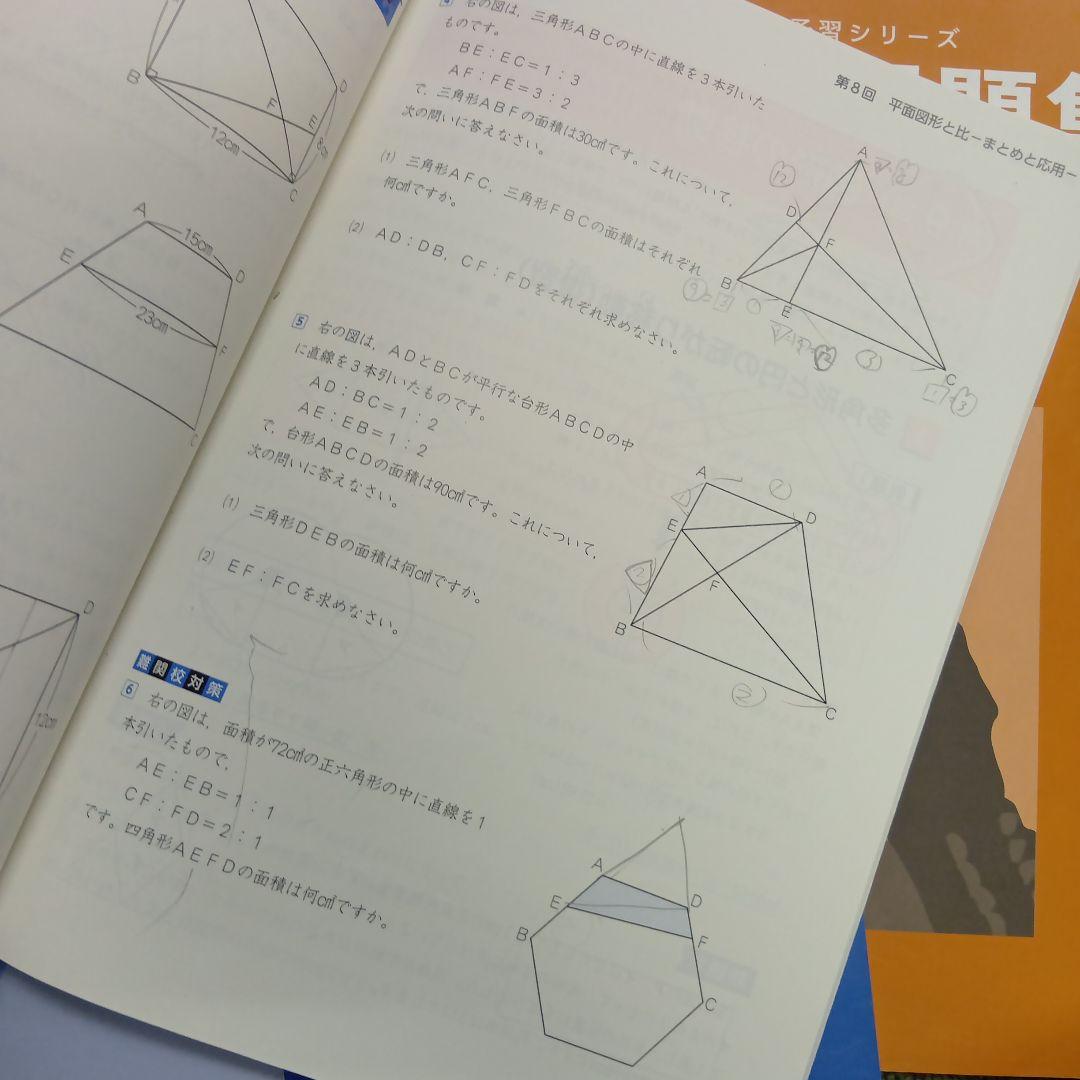 B
F
E
D
12cm
8cm
C
A
15cm
E
D
23cm
F
C
D
12cm
予習シリーズ
題集
第8回 平面図形と比－まとめと応用－
4 右の図は,三角形ABCの中に直線を3本引いた
ものです。
BE:EC=1:3
AF:FE=3:2
で,三角形ABFの面積は30㎠です。これについて,
次の問いに答えなさい。
(1) 三角形AFC,三角形FBCの面積はそれぞれ
何㎠ですか。
(2) AD:DB,CF:FDをそれぞれ求めなさい。
A
⑫
D
F
B
E
③
C
5 右の図は,ADとBCが平行な台形ABCDの中
に直線を3本引いたものです。
AD:BC=1:2
AE:EB=1:2
で,台形ABCDの面積は90㎠です。これについて,
次の問いに答えなさい。
(1) 三角形DEBの面積は何㎠ですか。
(2) EF:FCを求めなさい。
A
①
D
E
2
F
B
②
C
難関校対策
6 右の図は,面積が72㎠の正六角形の中に直線を1
本引いたもので,
AE:EB=1:1
CF:FD=2:1
です。四角形AEFDの面積は何㎠ですか。
A
E
D
B
F
C